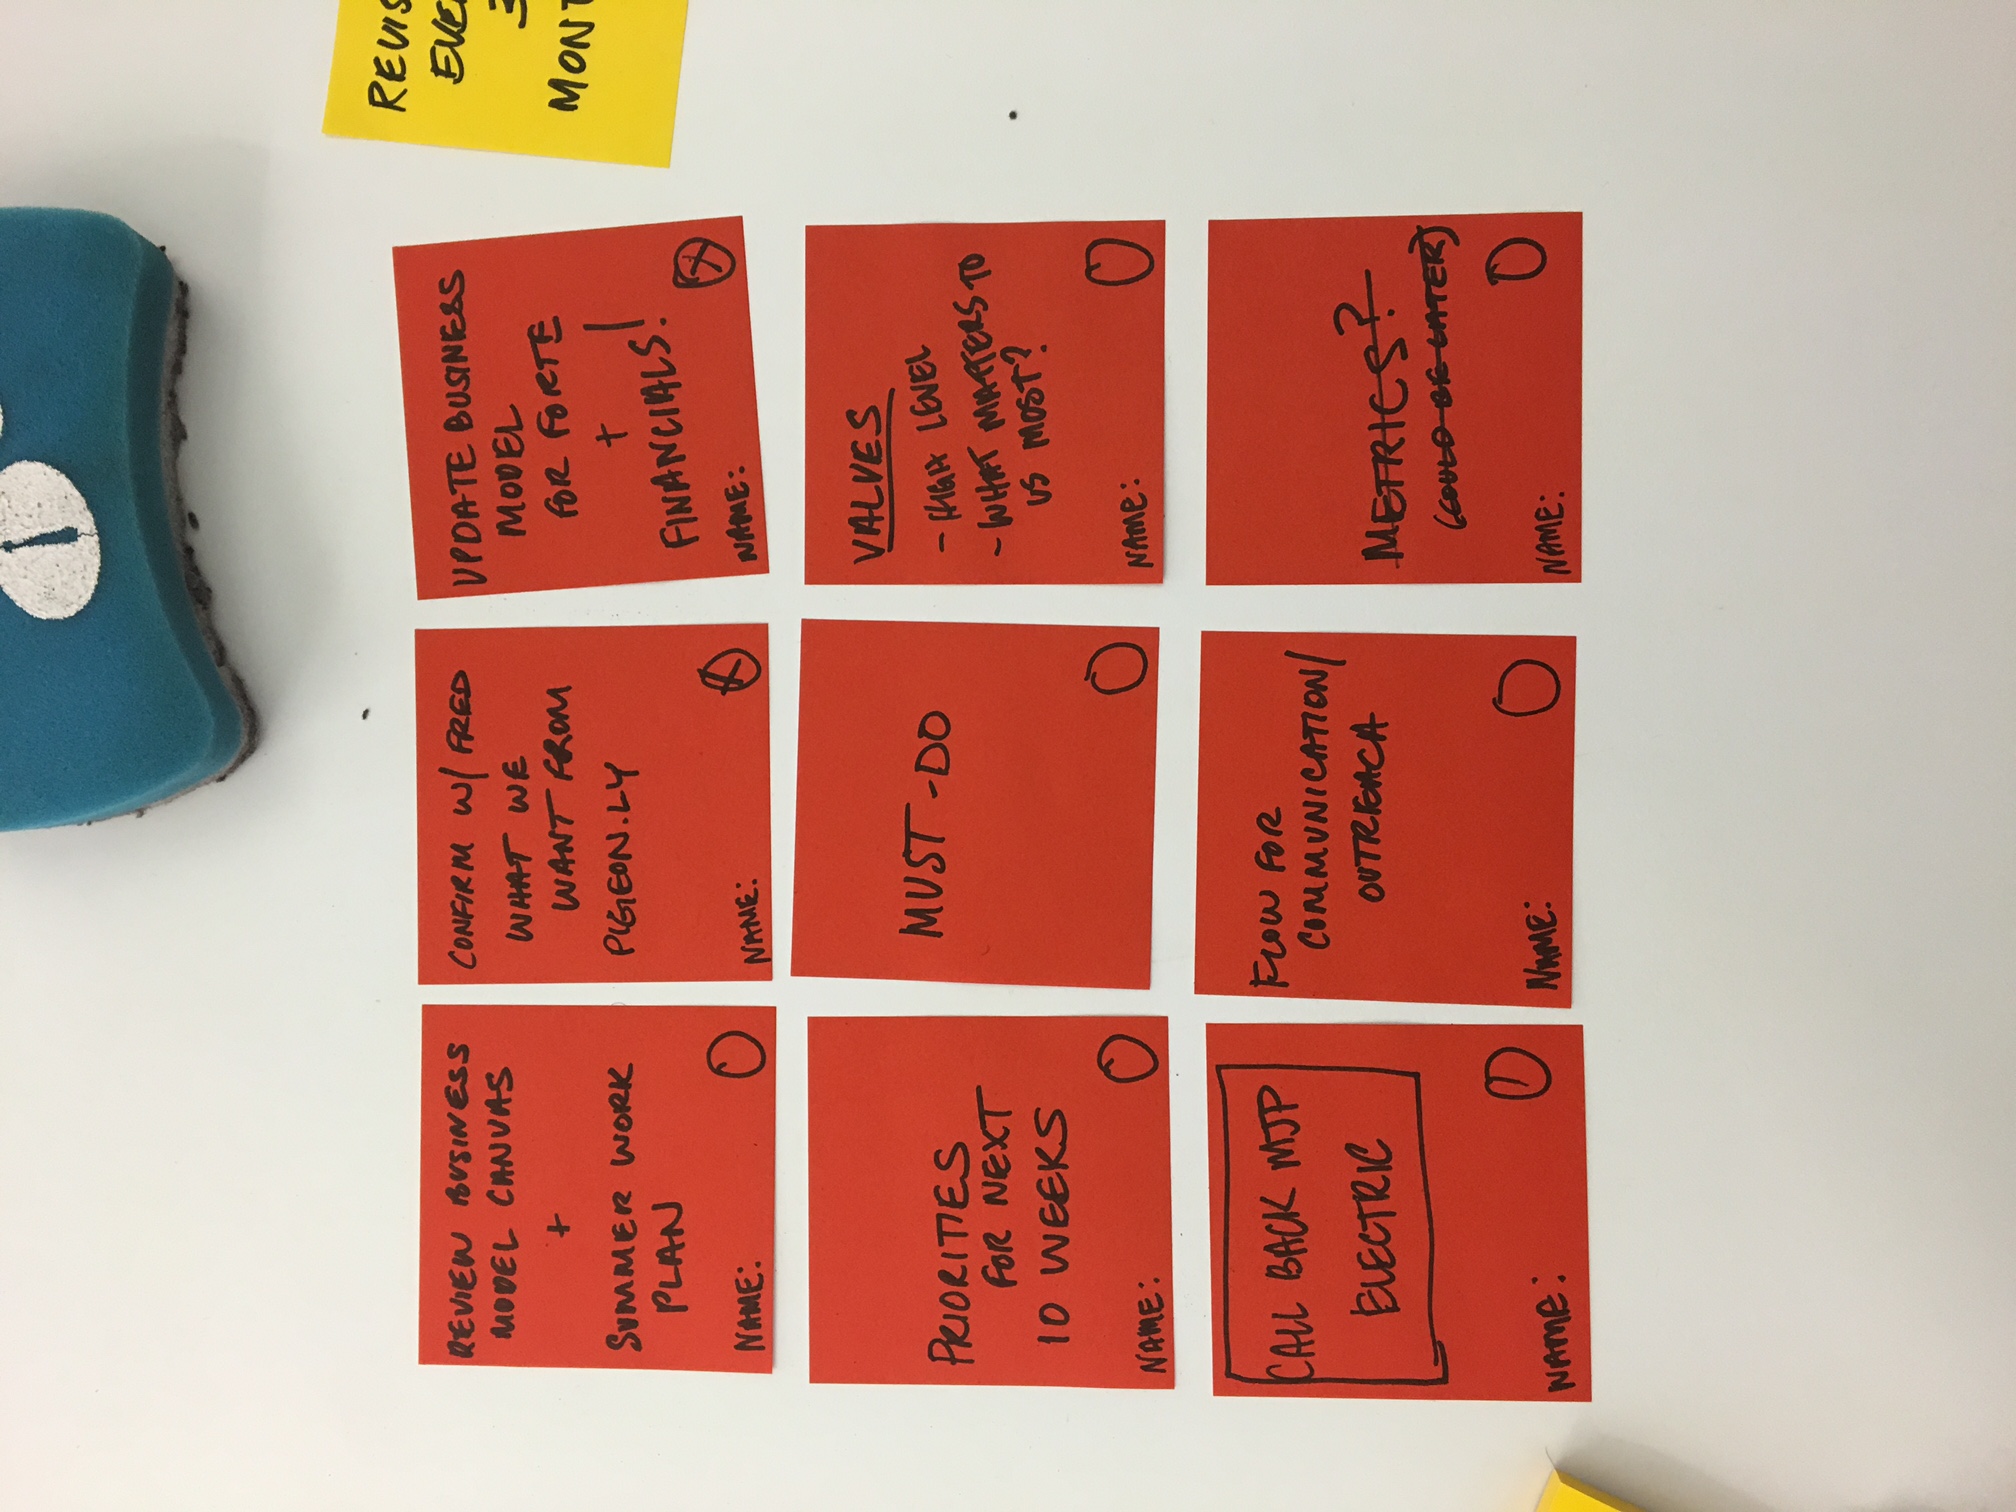 REVIEW BUSINESS
MODEL CANVAS
+
SUMMER WORK
PLAN
NAME:
CONFIRM W/ FRED
WHAT WE
WANT FROM
PIGEON.LY
NAME:
UPDATE BUSINESS
MODEL
FOR FORTE
+
FINANCIALS!
NAME:
REVIS
EVE
3
MONT
PRIORITIES
FOR NEXT
10 WEEKS
NAME:
MUST-DO
VALUES
- HIGH LEVEL
- WHAT MATTERS TO
US MOST?
NAME:
CALL BACK MJP
ELECTRIC
NAME:
FLOW FOR
COMMUNICATION/
OUTREACH
NAME:
METRICS?
(COULD BE LATER)
NAME: